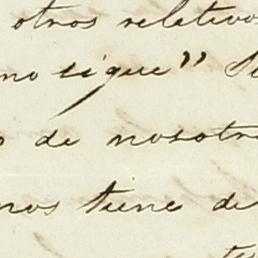 otros relativos
no sigue" Se
o de nosotro
nos tiene de